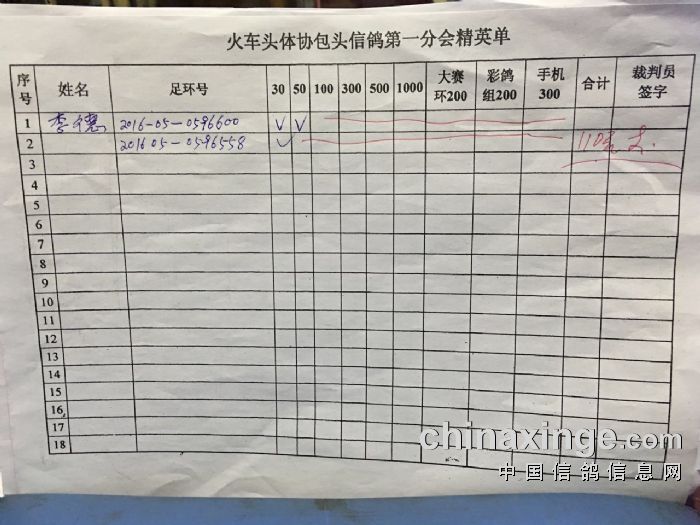 火车头体协包头信鸽第一分会精英单
序号 姓名 足环号 30 50 100 300 500 1000 大赛环200 彩鸽组200 手机300 合计 裁判员签字
1 2016-05-0596600 √ √
2 2016 05-0596558 √ 110
3
4
5
6
7
8
9
10
11
12
13
14
15
16
17
18
chinaxinge.com
中国信鸽信息网